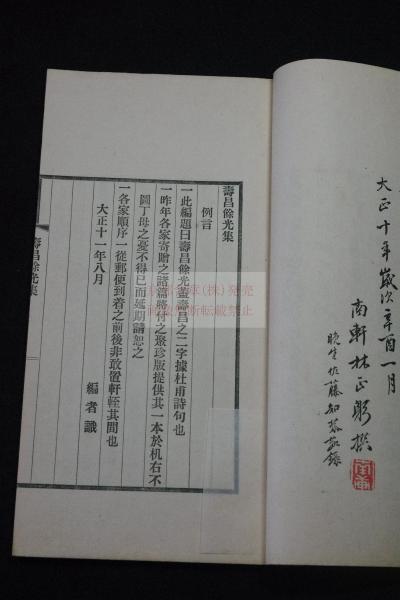 大正十年歳次辛酉一月
南軒林正躬撰
晩生佐藤知恭敬録
壽昌餘光集
例言
一此編題曰壽昌餘光蓋壽昌之二字據杜甫詩句也
一昨年各家寄贈之諸篇將付之聚珍版提供其一本於机右不
圖丁母之憂不得已而延期請恕之
一各家順序一從郵便到着之前後非敢置軒輊其間也
大正十一年八月
編者識
壽昌餘光集
(株)発売
無断転載禁止